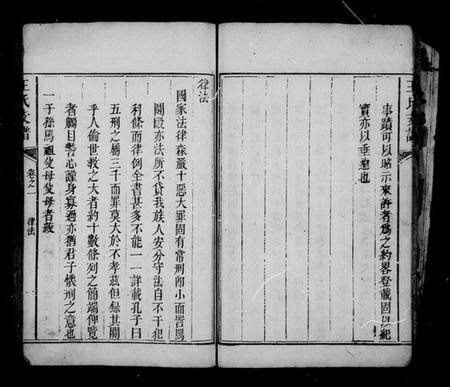 王氏支譜
事蹟可以昭示來許者為之約畧登載固以紀
實亦以垂遠也
律法
國家法律森嚴十惡大罪固有常刑即小而詈罵
鬬毆亦法所不貸我族人安分守法自不干犯
科條而律例全書甚多不能一一詳載孔子曰
五刑之屬三千而罪莫大於不孝茲但錄其關
乎人倫世教之大者約十數條列之簡端俾覽
者觸目警心謹身寡過亦猶君子懷刑之意也
一子孫罵祖父母父母者絞
王氏支譜
卷之
律法